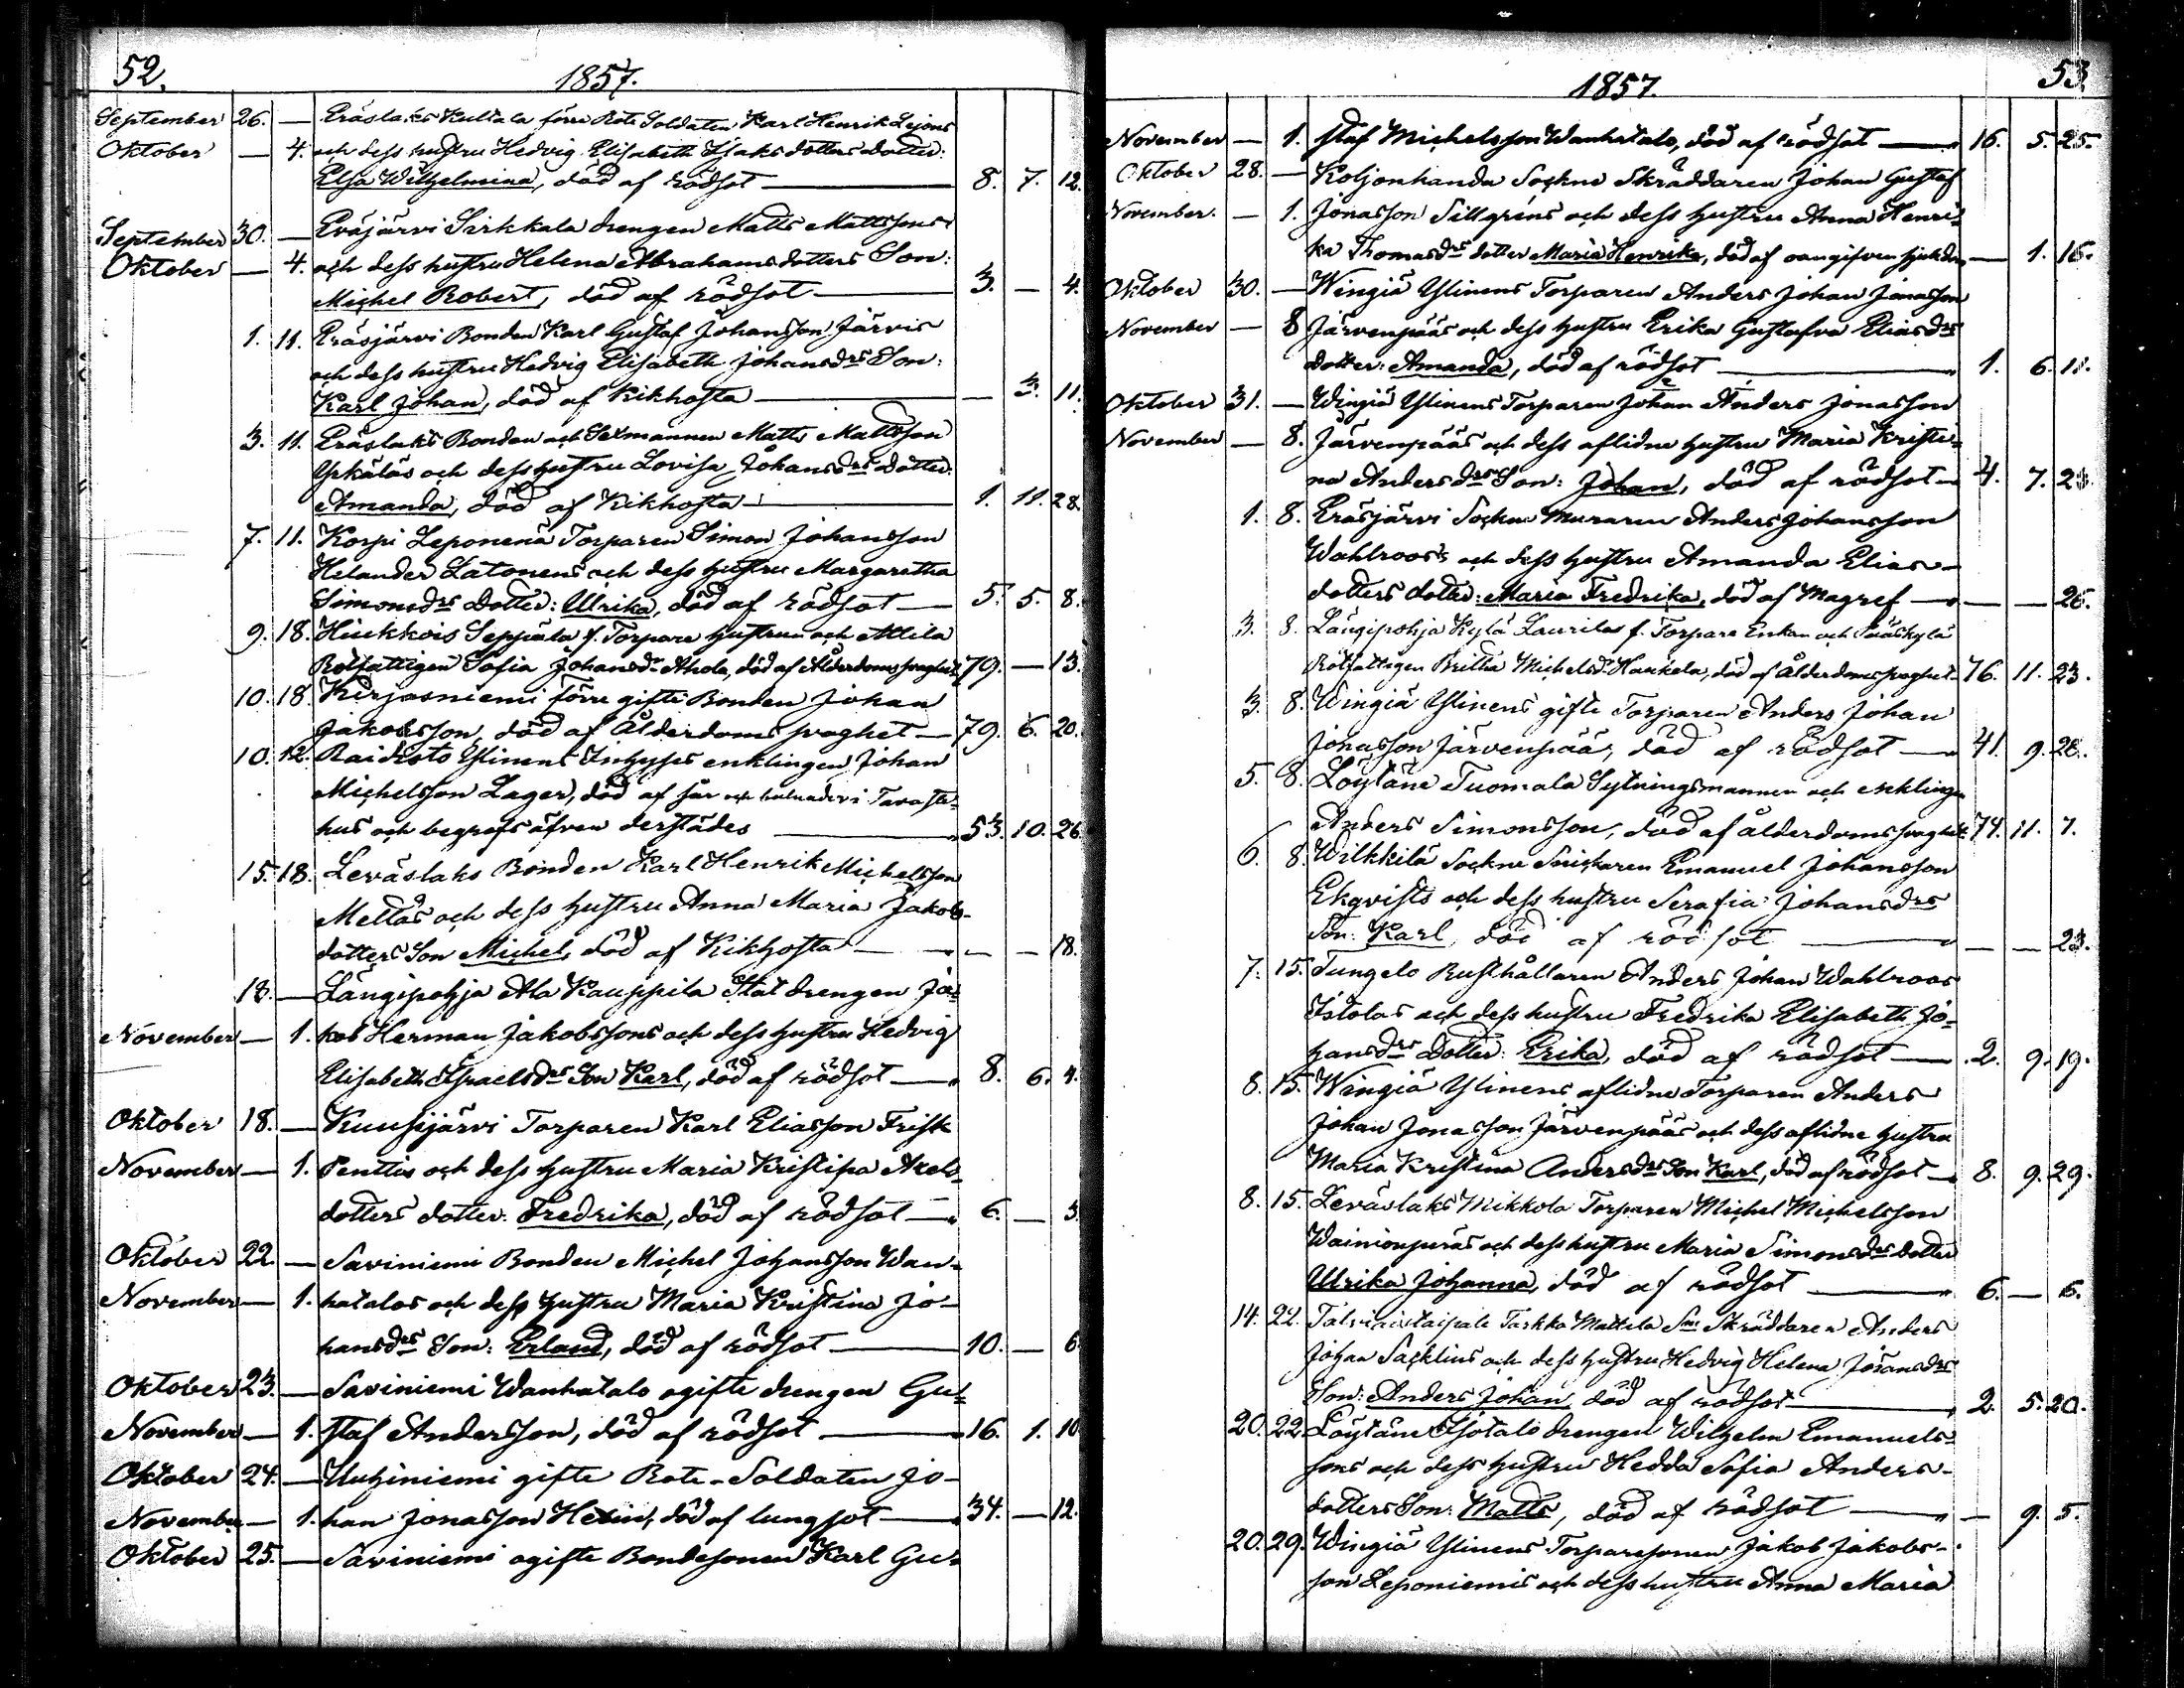 52.
1857.
September 26. — Eräslaks Kultala förre Rote Soldaten Karl Henrik Lejons
Oktober — 4. och dess hustru Hedvig Elisabeth Isaks dotters dotter:
Elsa Wilhelmina, död af rödsot — 8. 7. 12.
September 30. — Eräjärvi Sirkkala drengen Matts Mattssons
Oktober — 4. och dess hustru Helena Abrahamsdotters Son:
Michel Robert, död af rödsot — 3. — 4.
1. 11. Eräjärvi Bonden Karl Gustaf Johansson Järvis
och dess hustru Hedvig Elisabeth Johansdrs Son:
Karl Johan, död af Kikhosta — — 3. 11.
3. 11. Eräslaks Bonden och Sexmannen Matts Mattsson
Ypkäläs och dess hustru Lovisa Johansdrs dotter:
Amanda, död af Kikhosta — 1. 11. 28.
7. 11. Korpi Leponena Torparen Simon Johansson
Helander Latonens och dess hustru Margaretha
Simonsdrs Dotter: Ulrika, död af rödsot — 5. 5. 8.
9. 18. Hiukkois Seppälä f. Torpare hustrun och Attila
Rotfattigen Sofia Johansdr Ahola, död af Ålderdomssvaghet 79. — 13.
10. 18. Kirjasniemi förre gifte Bonden Johan
Jakobsson, död af Ålderdomssvaghet — 79. 6. 20.
10. 12. Raidisto Ylinens Inhyses enklingen Johan
Michelsson Lager, död af sår och bulnader i Tavaste-
hus och begrofs äfven derstädes — 53. 10. 26.
15. 18. Leväslaks Bonden Karl Henrik Michelsson
Mellas och dess hustru Anna Maria Jakobs-
dotters Son Michel, död af Kikhosta — — — 18.
18. — Längipohja Ala Kauppila Stat drengen Ja-
November — 1. kob Herman Jakobssons och dess hustru Hedvig
Elisabeth Israelsdrs Son Karl, död af rödsot — 8. 6. 4.
Oktober 18. — Kuusijärvi Torparen Karl Eliasson Frisk
November — 1. Penttis och dess hustru Maria Kristina Axels-
dotters dotter: Fredrika, död af rödsot — 6. — 3.
Oktober 22. — Saviniemi Bonden Michel Johansson Wan-
November — 1. hatalos och dess hustru Maria Kristina Jo-
hansdrs Son: Erland, död af rödsot — 10. — 6.
Oktober 23. — Saviniemi Wanhatalo ogifte drengen Gu-
November — 1. staf Andersson, död af rödsot — 16. 1. 10.
Oktober 24. — Uuhiniemi gifte Rote-Soldaten Jo-
November — 1. han Jonasson Hein, död af lungsot — 34. — 12.
Oktober 25. — Saviniemi ogifte Bondesonen Karl Gu-
1857.
53.
November — 1. staf Michelsson Wanhatalo, död af rödsot — 16. 5. 25.
Oktober 28. — Koljonkanda Sockne Skräddaren Johan Gustaf
November. — 1. Jonasson Sillgréns och dess hustru Anna Henri-
ka Thomasdrs dotter Maria Henrika, död af oangifven sjukdom — 1. 16.
Oktober 30. — Wingiä Ylinens Torparen Anders Johan Jonasson
November — 8 Järvenpääs och dess hustru Erika Gustafva Eliasdrs
dotter: Amanda, död af rödsot — 1. 6. 11.
Oktober 31. — Wingiä Ylinens Torparen Johan Anders Jonasson
November — 8. Järvenpääs och dess aflidne hustru Maria Kristi-
na Andersdrs Son: Johan, död af rödsot — 4. 7. 23.
1. 8. Eräsjärvi Sockne Muraren Anders Johansson
Wahlroos's och dess hustru Amanda Elias-
dotters dotter: Maria Fredrika, död af Magref — — — 26.
3. 8. Längipohja Kylä Laurilas f. Torpare Enkan och Pääskylä
Rotfattigen Britha Michelsdr Hankela, död af ålderdomssvaghet 76. 11. 23.
3. 8. Wingiä Ylinens gifte Torparen Anders Johan
Jonasson Järvenpää, död af rödsot — 41. 9. 28.
5. 8. Löytäne Tuomala Sytningsmannen och enklingen
Anders Simonsson, död af ålderdomssvaghet 74. 11. 7.
6. 8. Wilkkilä Sockne Snickaren Emanuel Johansson
Ekqvists och dess hustru Serafia Johansdrs
Son: Karl, död af rödsot — — — 23.
7. 15. Tungelo Rusthållaren Anders Johan Wahlroos
Istolas och dess hustru Fredrika Elisabeth Jo-
hansdrs Dotter: Erika, död af rödsot — 2. 9. 19.
8. 15. Wingiä Ylinens aflidne Torparen Anders
Johan Jonasson Järvenpääs och dess aflidne hustru
Maria Kristina Andersdrs Son Karl, död af rödsot — 8. 9. 29.
8. 15. Leväslaks Mikkola Torparen Michel Michelsson
Wainionperäs och dess hustru Maria Simonsdrs dotter
Ulrika Johanna, död af rödsot — 6. — 6.
14. 22. Talviaistaipale Tarkka Mattila Sne Skräddaren Anders
Johan Sacklins och dess hustru Hedvig Helena Johansdrs
Son: Anders Johan, död af rödsot — 2. 5. 20.
20. 22. Löytäne Isotalo drengen Wilhelm Emanuels-
sons och dess hustru Hedda Sofia Anders-
dotters Son: Matts, död af rödsot — — 9. 5.
20. 29. Wingiä Ylinens Torparesonen Jakob Jakobs-
son Leponiemis och dess hustru Anna Maria